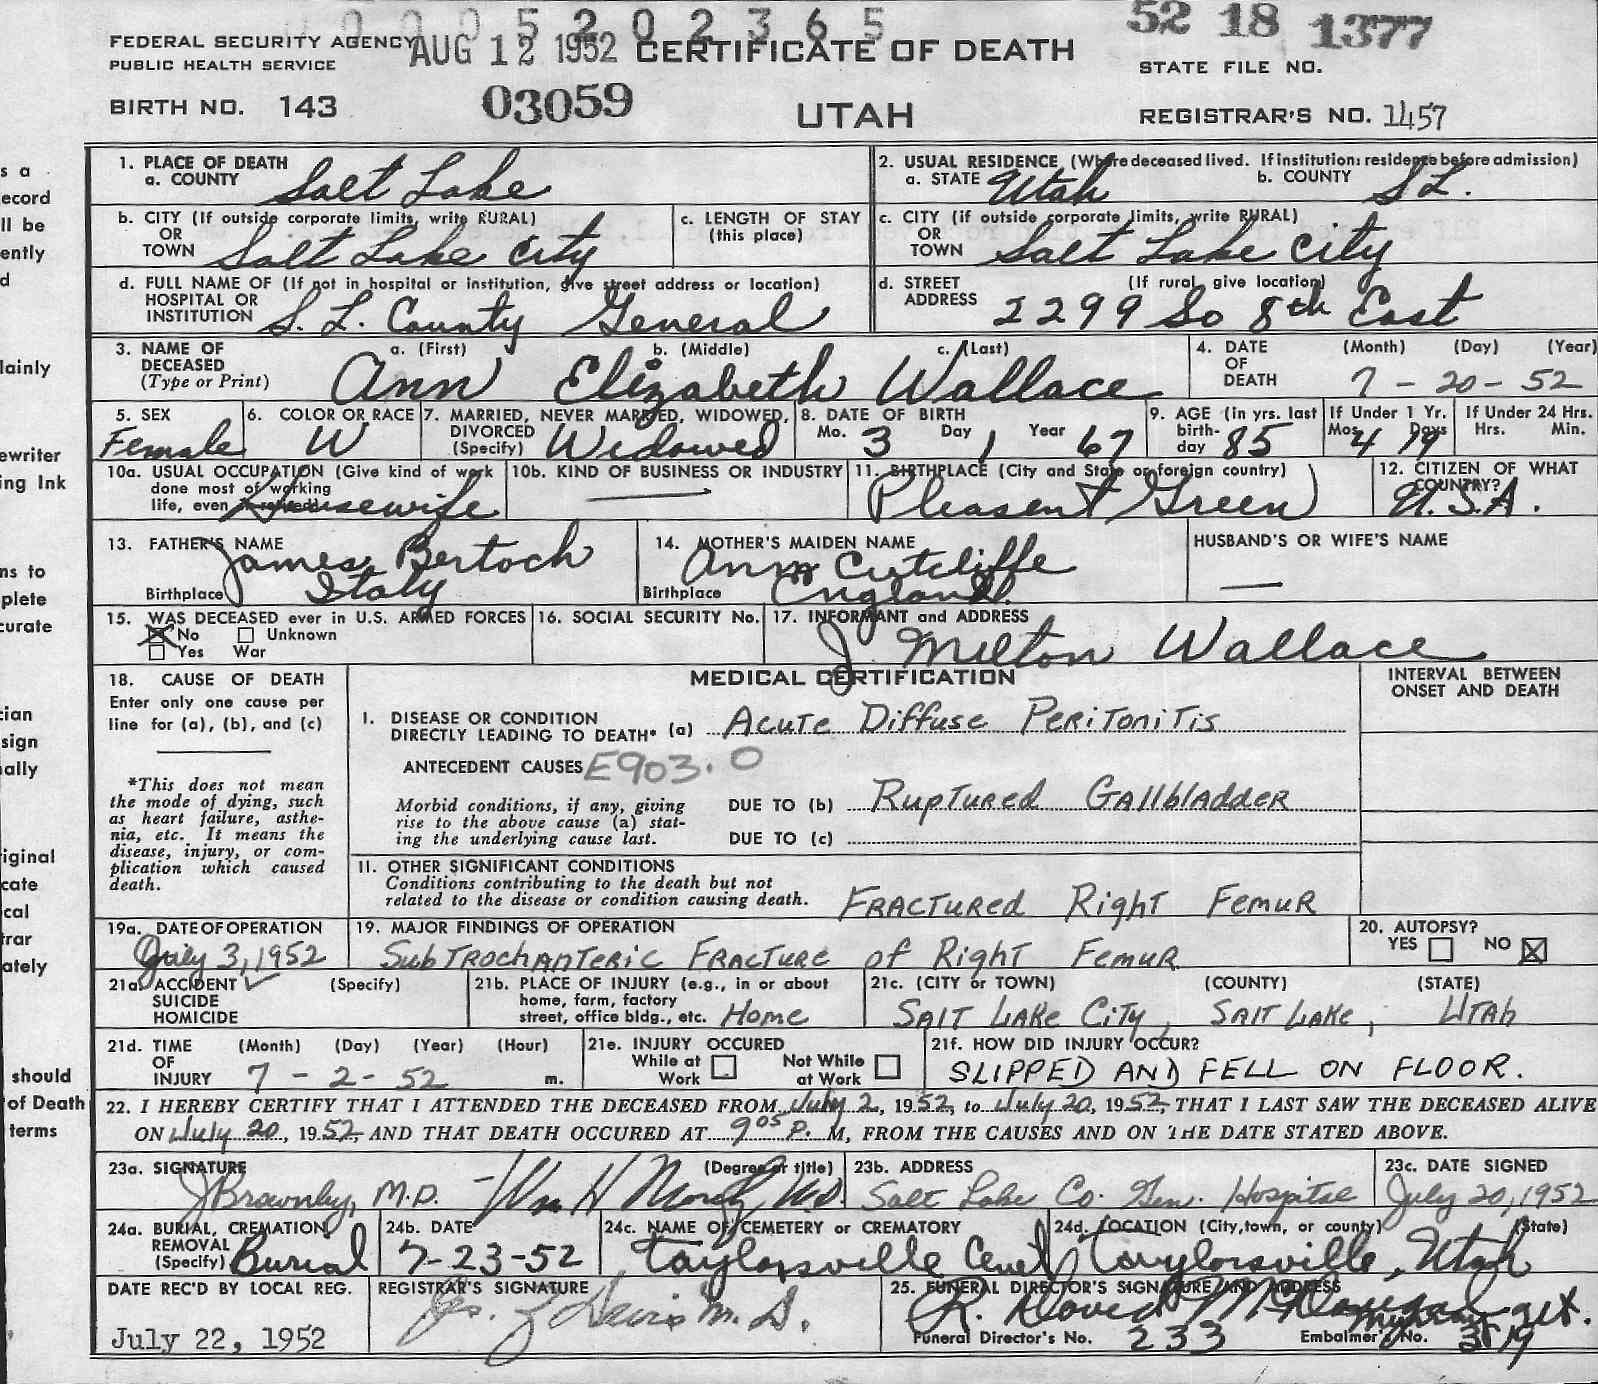 00005202365
52 18 1377
FEDERAL SECURITY AGENCY AUG 12 1952 CERTIFICATE OF DEATH
PUBLIC HEALTH SERVICE
STATE FILE NO.
BIRTH NO. 143 03059 UTAH REGISTRAR'S NO. 1457
1. PLACE OF DEATH
a. COUNTY Salt Lake
2. USUAL RESIDENCE (Where deceased lived. If institution: residence before admission)
a. STATE Utah b. COUNTY S L.
b. CITY (If outside corporate limits, write RURAL)
OR
TOWN Salt Lake City
c. LENGTH OF STAY
(this place)
c. CITY (if outside corporate limits, write RURAL)
OR
TOWN Salt Lake City
d. FULL NAME OF (If not in hospital or institution, give street address or location)
HOSPITAL OR
INSTITUTION S. L. County General
d. STREET (If rural, give location)
ADDRESS 2299 So 8th East
3. NAME OF a. (First) b. (Middle) c. (Last)
DECEASED
(Type or Print) Ann Elizabeth Wallace
4. DATE (Month) (Day) (Year)
OF
DEATH 7 - 20 - 52
5. SEX
Female
6. COLOR OR RACE
W
7. MARRIED, NEVER MARRIED, WIDOWED,
DIVORCED
(Specify) Widowed
8. DATE OF BIRTH
Mo. 3 Day 1 Year 67
9. AGE (in yrs. last
birth-
day 85
If Under 1 Yr.
Mos. 4 Days 19
If Under 24 Hrs.
Hrs. Min.
10a. USUAL OCCUPATION (Give kind of work
done most of working
life, even if retired) Housewife
10b. KIND OF BUSINESS OR INDUSTRY
11. BIRTHPLACE (City and State or foreign country)
Pleasent Green
12. CITIZEN OF WHAT
COUNTRY?
U.S.A.
13. FATHER'S NAME
James Bertoch
Birthplace Italy
14. MOTHER'S MAIDEN NAME
Ann Cutcliffe
Birthplace England.
HUSBAND'S OR WIFE'S NAME
15. WAS DECEASED ever in U.S. ARMED FORCES
No Unknown
Yes War
16. SOCIAL SECURITY No.
17. INFORMANT and ADDRESS
J. Milton Wallace
18. CAUSE OF DEATH
Enter only one cause per
line for (a), (b), and (c)
*This does not mean
the mode of dying, such
as heart failure, asthe-
nia, etc. It means the
disease, injury, or com-
plication which caused
death.
MEDICAL CERTIFICATION
INTERVAL BETWEEN
ONSET AND DEATH
I. DISEASE OR CONDITION
DIRECTLY LEADING TO DEATH* (a) Acute Diffuse Peritonitis
ANTECEDENT CAUSES E903.0
Morbid conditions, if any, giving
rise to the above cause (a) stat-
ing the underlying cause last.
DUE TO (b) Ruptured Gallbladder
DUE TO (c)
II. OTHER SIGNIFICANT CONDITIONS
Conditions contributing to the death but not
related to the disease or condition causing death. Fractured Right Femur
19a. DATE OF OPERATION
July 3, 1952
19. MAJOR FINDINGS OF OPERATION
Subtrochanteric Fracture of Right Femur
20. AUTOPSY?
YES NO
21a. ACCIDENT ✓ (Specify)
SUICIDE
HOMICIDE
21b. PLACE OF INJURY (e.g., in or about
home, farm, factory
street, office bldg., etc. Home
21c. (CITY or TOWN) (COUNTY) (STATE)
Salt Lake City, Salt Lake, Utah
21d. TIME (Month) (Day) (Year) (Hour)
OF
INJURY 7 - 2 - 52 m.
21e. INJURY OCCURED
While at Work Not While at Work
21f. HOW DID INJURY OCCUR?
SLIPPED AND FELL ON FLOOR.
22. I HEREBY CERTIFY THAT I ATTENDED THE DECEASED FROM July 2, 1952, to July 20, 1952, THAT I LAST SAW THE DECEASED ALIVE
ON July 20, 1952, AND THAT DEATH OCCURED AT 9:05 P. M, FROM THE CAUSES AND ON THE DATE STATED ABOVE.
23a. SIGNATURE (Degree or title)
J Brownley, M.D. - Wm H M.D.
23b. ADDRESS
Salt Lake Co. Gen. Hospital
23c. DATE SIGNED
July 20, 1952
24a. BURIAL, CREMATION,
REMOVAL
(Specify) Burial
24b. DATE
7-23-52
24c. NAME OF CEMETERY or CREMATORY
Taylorsville Cem
24d. LOCATION (City, town, or county) (State)
Taylorsville, Utah
DATE REC'D BY LOCAL REG.
July 22, 1952
REGISTRAR'S SIGNATURE
Jas. Z Davis M.D.
25. FUNERAL DIRECTOR'S SIGNATURE AND ADDRESS
R. David
Funeral Director's No. 233 Embalmer's No.
s a
ecord
ll be
ently
d
lainly
ewriter
ing Ink
ns to
plete
curate
cian
sign
nally
riginal
cate
cal
trar
ately
should
of Death
terms